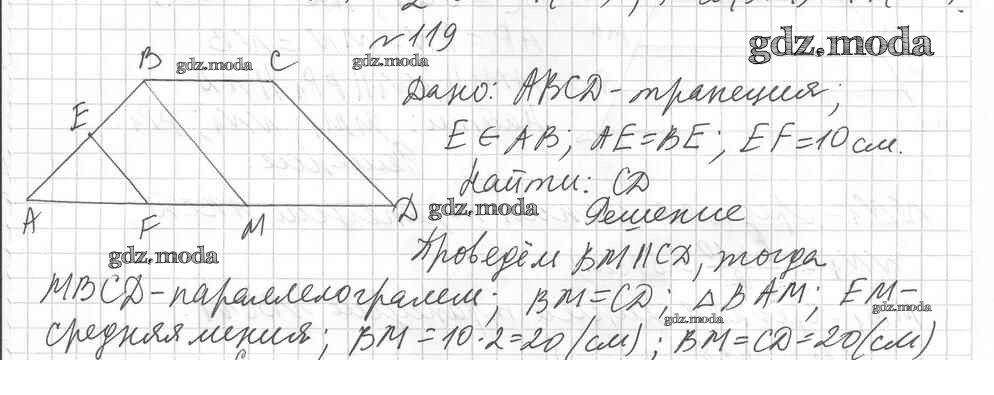 №119
gdz.moda
B gdz.moda C gdz.moda
Дано: ABCD-трапеция;
E
E ∈ AB; AE=BE; EF=10см.
Найти: CD
A F M D gdz.moda Решение
gdz.moda Проведём BM||CD, тогда
MBCD-параллелограмм; BM=CD; △BAM; EM-
gdz.moda gdz.moda
средняя линия; BM=10·2=20(см); BM=CD=20(см)